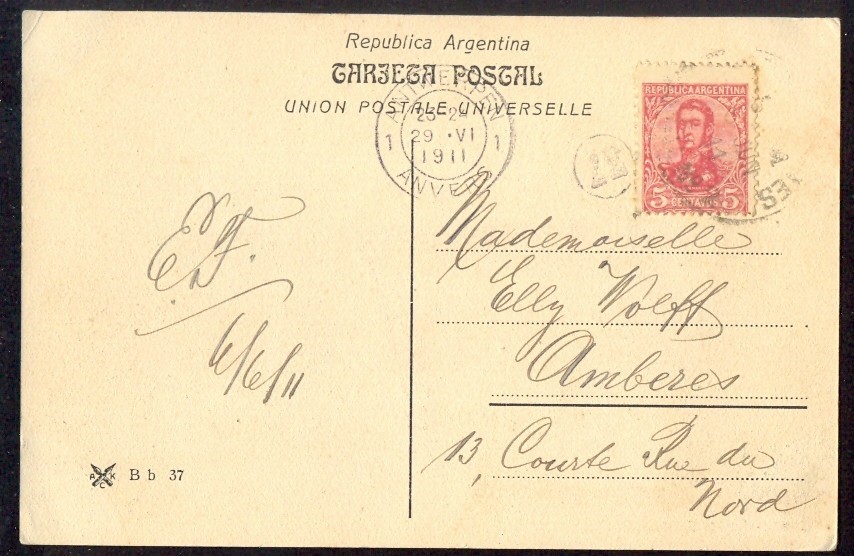 Republica Argentina
TARJETA POSTAL
UNION POSTALE UNIVERSELLE
ANTWERPEN
1 29 · VI 1
1911
ANVERS
REPÚBLICA ARGENTINA
5 CENTAVOS 5
37
Mademoiselle
Elly Wolff
Amberes
13, Courte Rue du
Nord
E.F.
6/6/11
A C K
B b 37